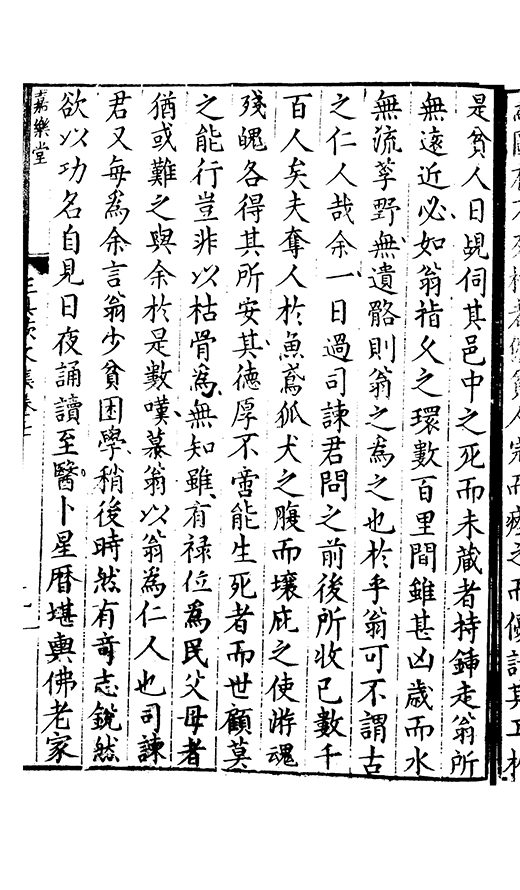 是貧人日覘伺其邑中之死而未蔵者持鍤走翁所
無逺近必如翁指久之環數百里間雖甚凶歲而水
無流莩野無遺骼則翁之為之也於乎翁可不謂古
之仁人哉余一日過司諫君問之前後所收已數千
百人矣夫奪人於魚鳶狐犬之腹而壤庇之使㳺魂
殘魄各得其所安其德厚不啻能生死者而世顧莫
之能行豈非以枯骨為無知雖有禄位為民父母者
猶或難之與余於是數嘆慕翁以翁為仁人也司諫
君又每為余言翁少貧困學稍後時然有奇志銳然
欲以功名自見日夜誦讀至醫卜星曆堪輿佛老家
嘉樂堂